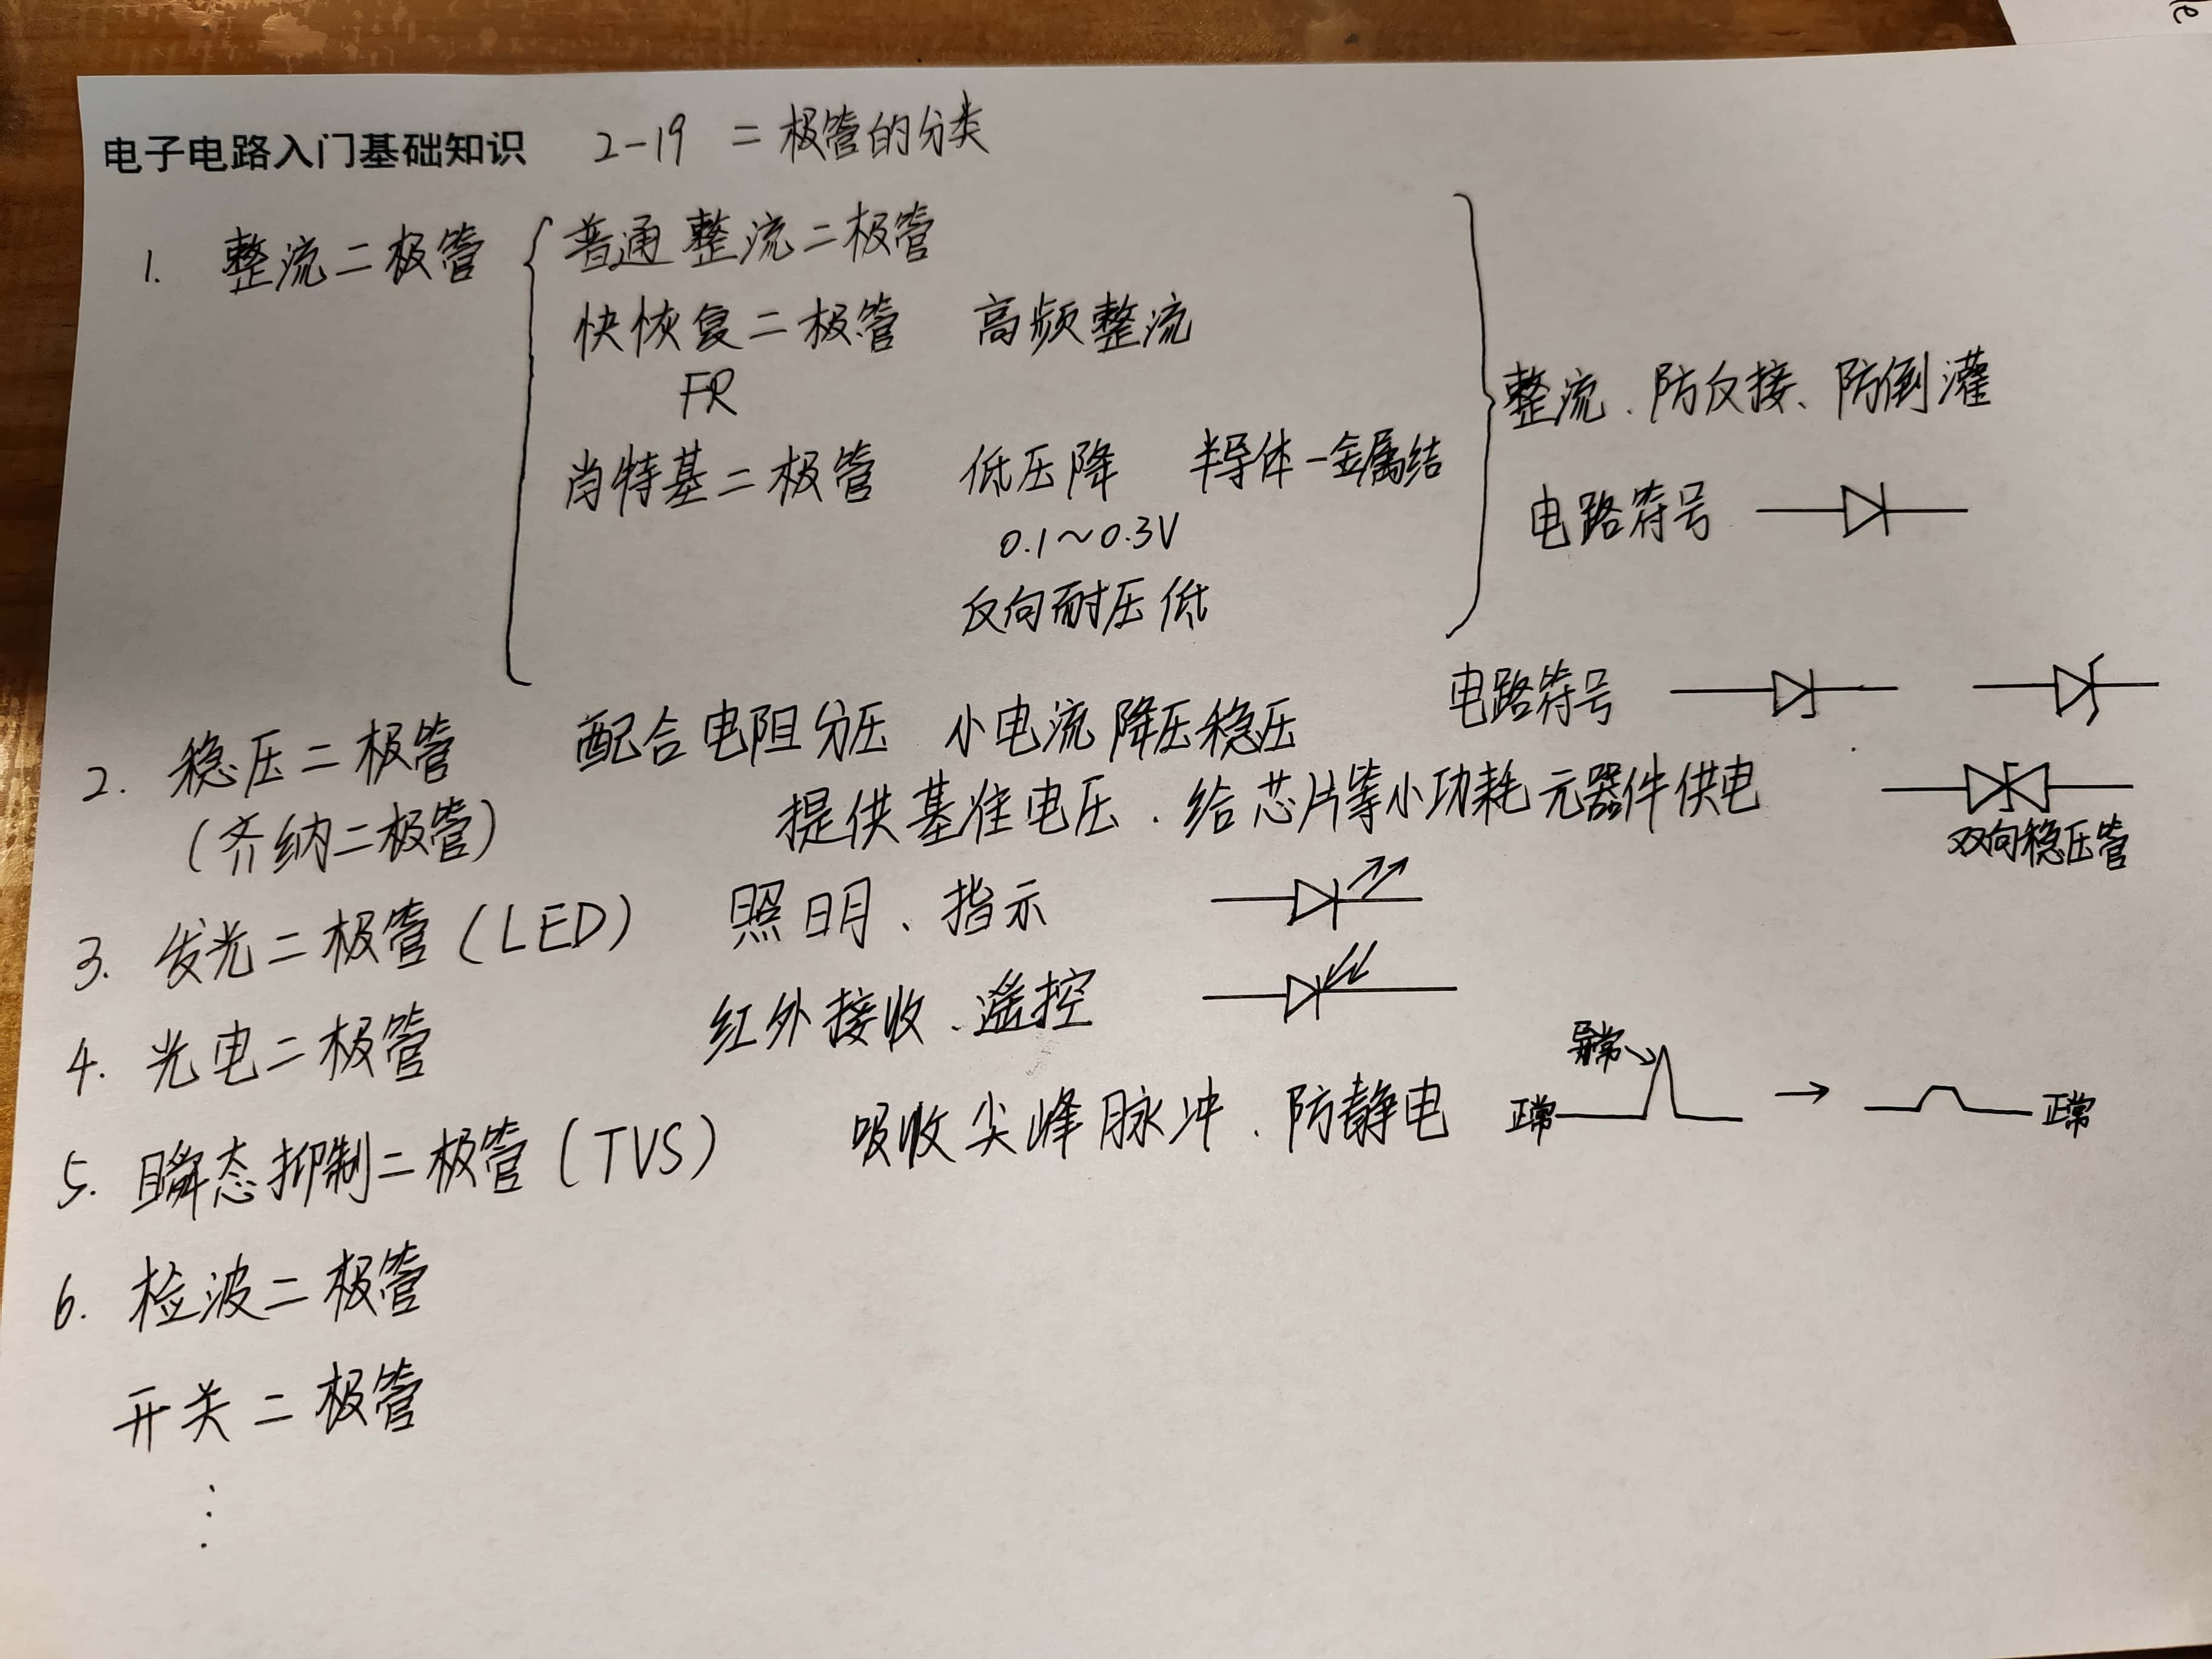 电子电路入门基础知识 2-19 二极管的分类
1. 整流二极管 普通整流二极管
快恢复二极管 高频整流
FR
整流、防反接、防倒灌
肖特基二极管 低压降 半导体-金属结
电路符号
0.1~0.3V
反向耐压低
电路符号
2. 稳压二极管 配合电阻分压 小电流降压稳压
(齐纳二极管) 提供基准电压、给芯片等小功耗元器件供电
双向稳压管
3. 发光二极管(LED) 照明、指示
4. 光电二极管 红外接收、遥控
异常
5. 瞬态抑制二极管(TVS) 吸收尖峰脉冲、防静电 正常 → 正常
6. 检波二极管
开关二极管
⋮